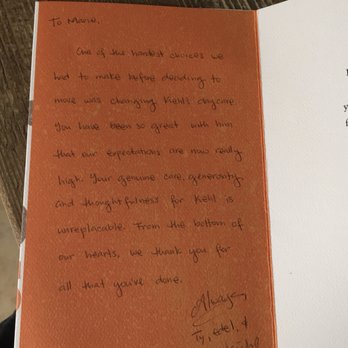 To Marie,
One of the hardest choices we
had to make before deciding to
move was changing Kehl's daycare.
You have been so great with him
that our expectations are now really
high. Your genuine care, generosity
and thoughtfulness for Kehl is
unreplacable. From the bottom of
our hearts, we thank you for
all that you've done.
Always,
Ty, &
y
f